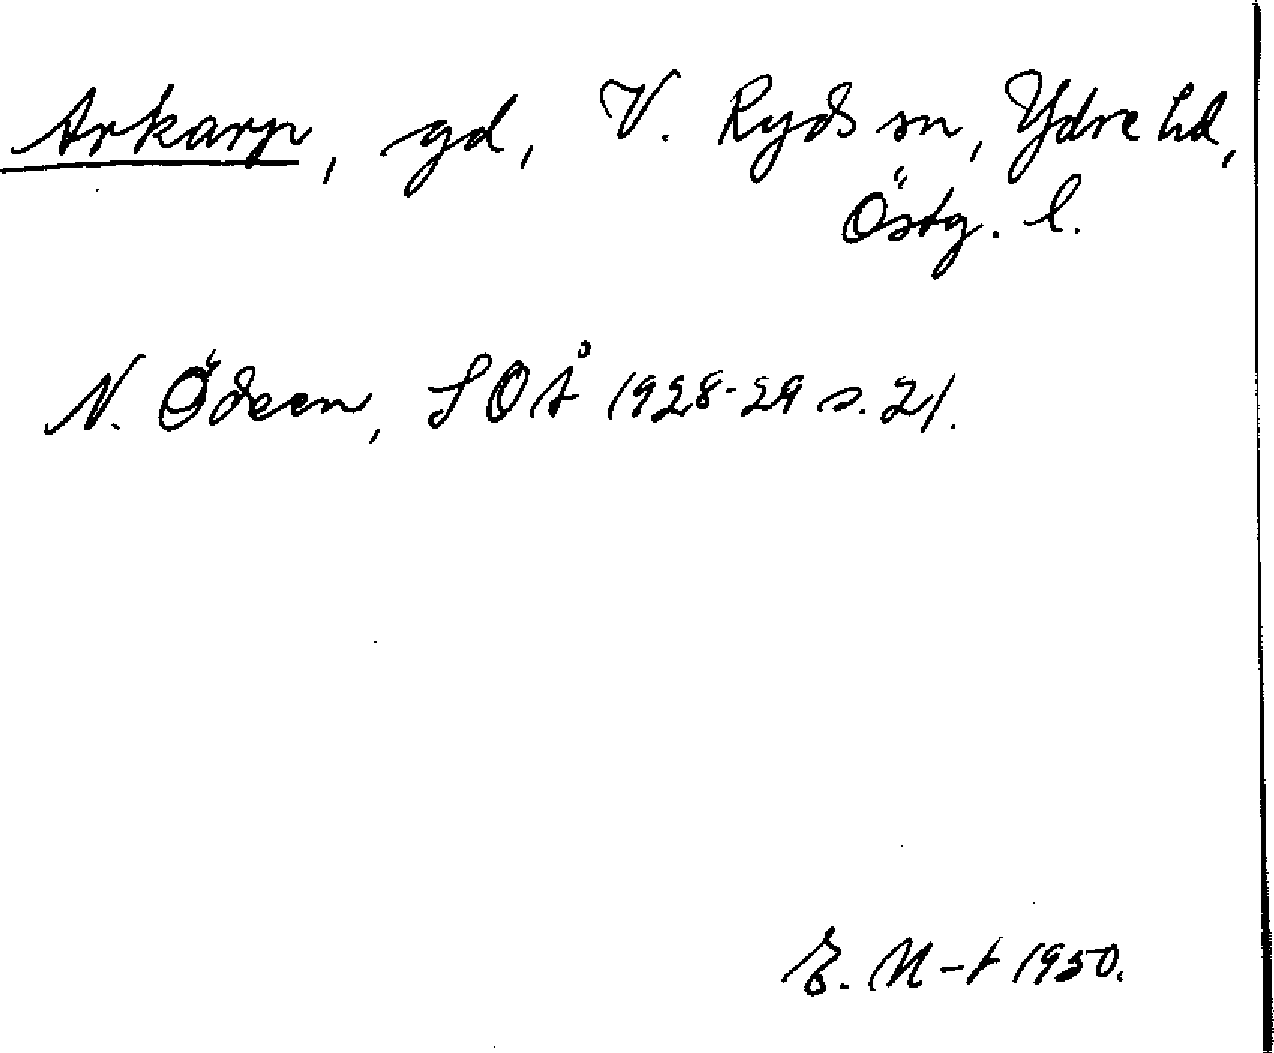 Arkarp, gd, V. Ryds sn, Ydre hd,
Östg. l.
N. Ödeen, SOÅ 1928-29 s. 21.
E. N-t 1950.